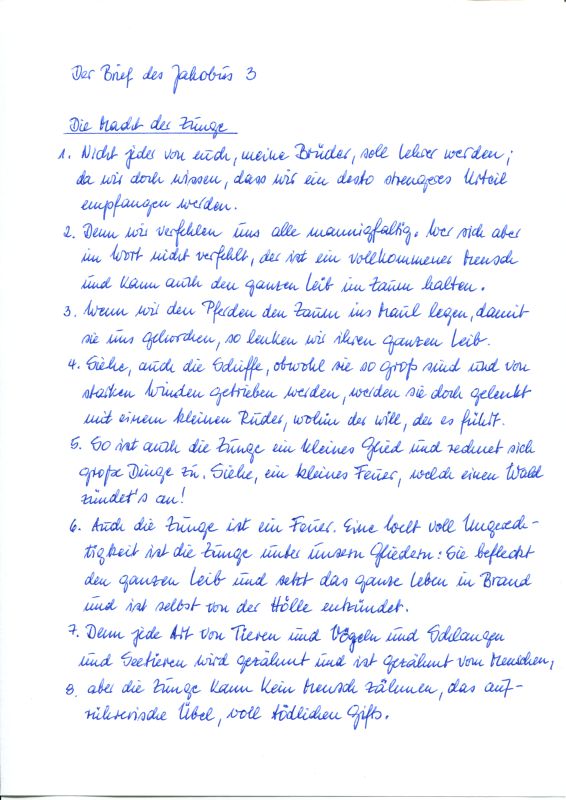 Der Brief des Jakobus 3
Die Macht der Zunge
1. Nicht jeder von euch, meine Brüder, soll Lehrer werden;
da wir doch wissen, dass wir ein desto strengeres Urteil
empfangen werden.
2. Denn wir verfehlen uns alle mannigfaltig. Wer sich aber
im Wort nicht verfehlt, der ist ein vollkommener Mensch
und kann auch den ganzen Leib im Zaum halten.
3. Wenn wir den Pferden den Zaum ins Maul legen, damit
sie uns gehorchen, so lenken wir ihren ganzen Leib.
4. Siehe, auch die Schiffe, obwohl sie so groß sind und von
starken Winden getrieben werden, werden sie doch gelenkt
mit einem kleinen Ruder, wohin der will, der es führt.
5. So ist auch die Zunge ein kleines Glied und rechnet sich
große Dinge zu. Siehe, ein kleines Feuer, welch einen Wald
zündet's an!
6. Auch die Zunge ist ein Feuer. Eine Welt voll Ungerech-
tigkeit ist die Zunge unter unsern Gliedern: Sie befleckt
den ganzen Leib und setzt das ganze Leben in Brand
und ist selbst von der Hölle entzündet.
7. Denn jede Art von Tieren und Vögeln und Schlangen
und Seetieren wird gezähmt und ist gezähmt vom Menschen,
8. aber die Zunge kann kein Mensch zähmen, das auf-
rührerische Übel, voll tödlichen Gifts.